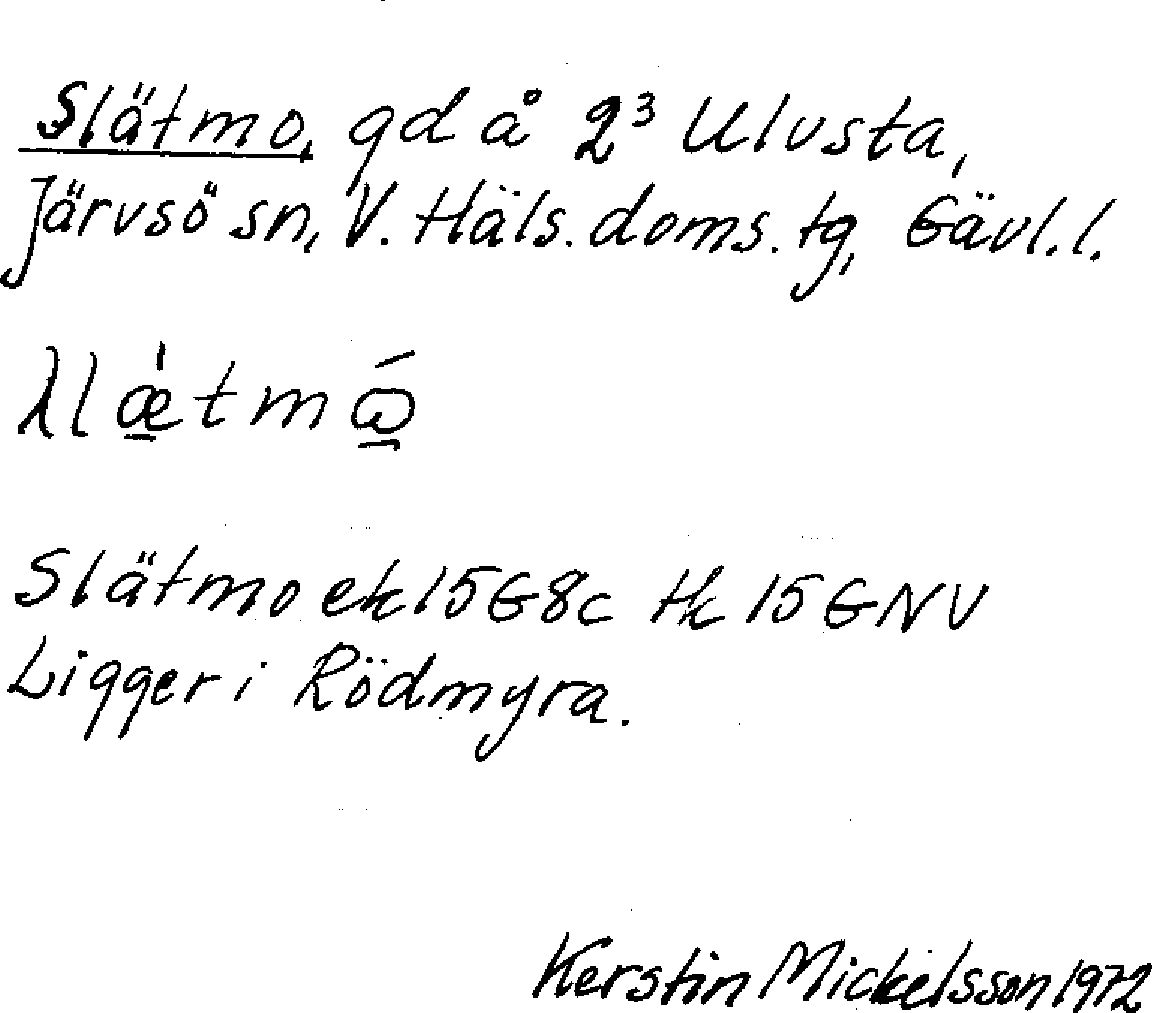 Slätmo, gd å 2³ Ulvsta,
Järvsö sn, V. Häls. doms. tg, Gävl. l.
Slätmo ek 15G8c tk 15GNV
Ligger i Rödmyra.
Kerstin Mickelsson 1972